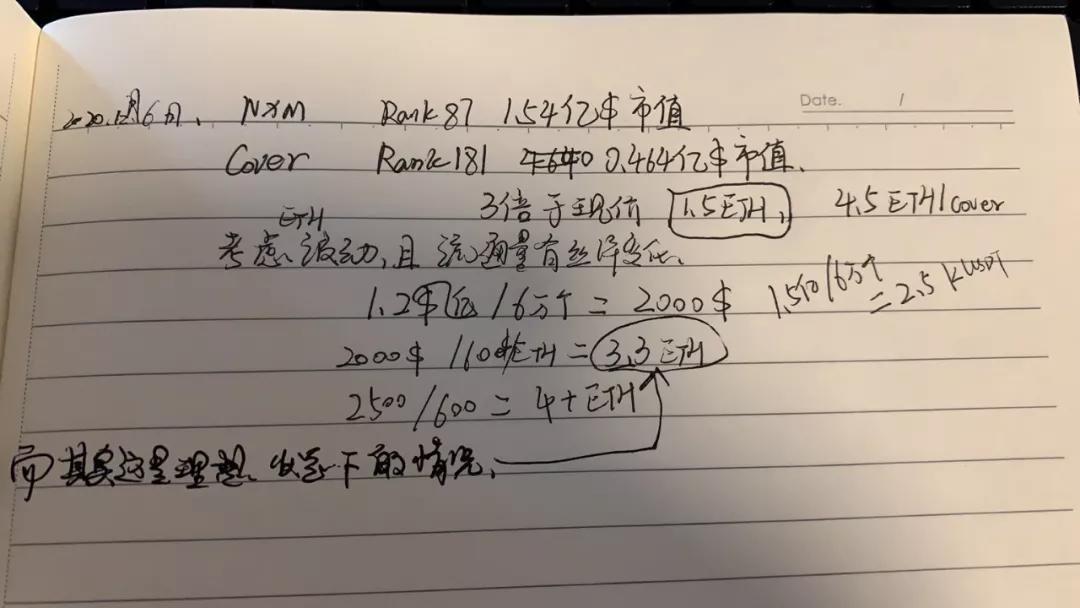 2020.12月6日、 NXM Rank87 1.54亿$市值
Date. /
Cover Rank181 0.464亿$市值、
3倍于现价 1.5ETH, 4.5ETH/cover
考虑ETH波动,且流通量有些许变化、
1.2$亿/6万个=2000$ 1.5亿/6万个=2.5KUSDT
2000$/600$/ETH=3.3ETH
2500/600=4+ETH
而其实这是理想 下的情况、